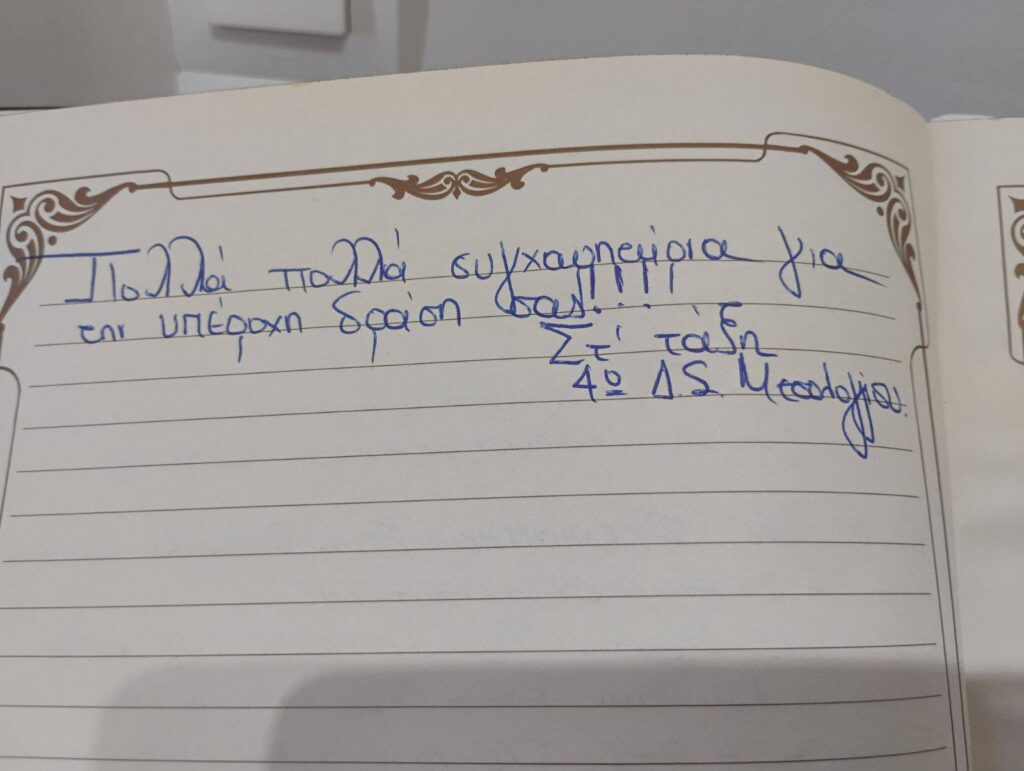 Πολλά πολλά συγχαρητήρια για
την υπέροχη δράση σας!!!!...
Στ' τάξη
4º Δ.Σ. Μεσολογγίου.